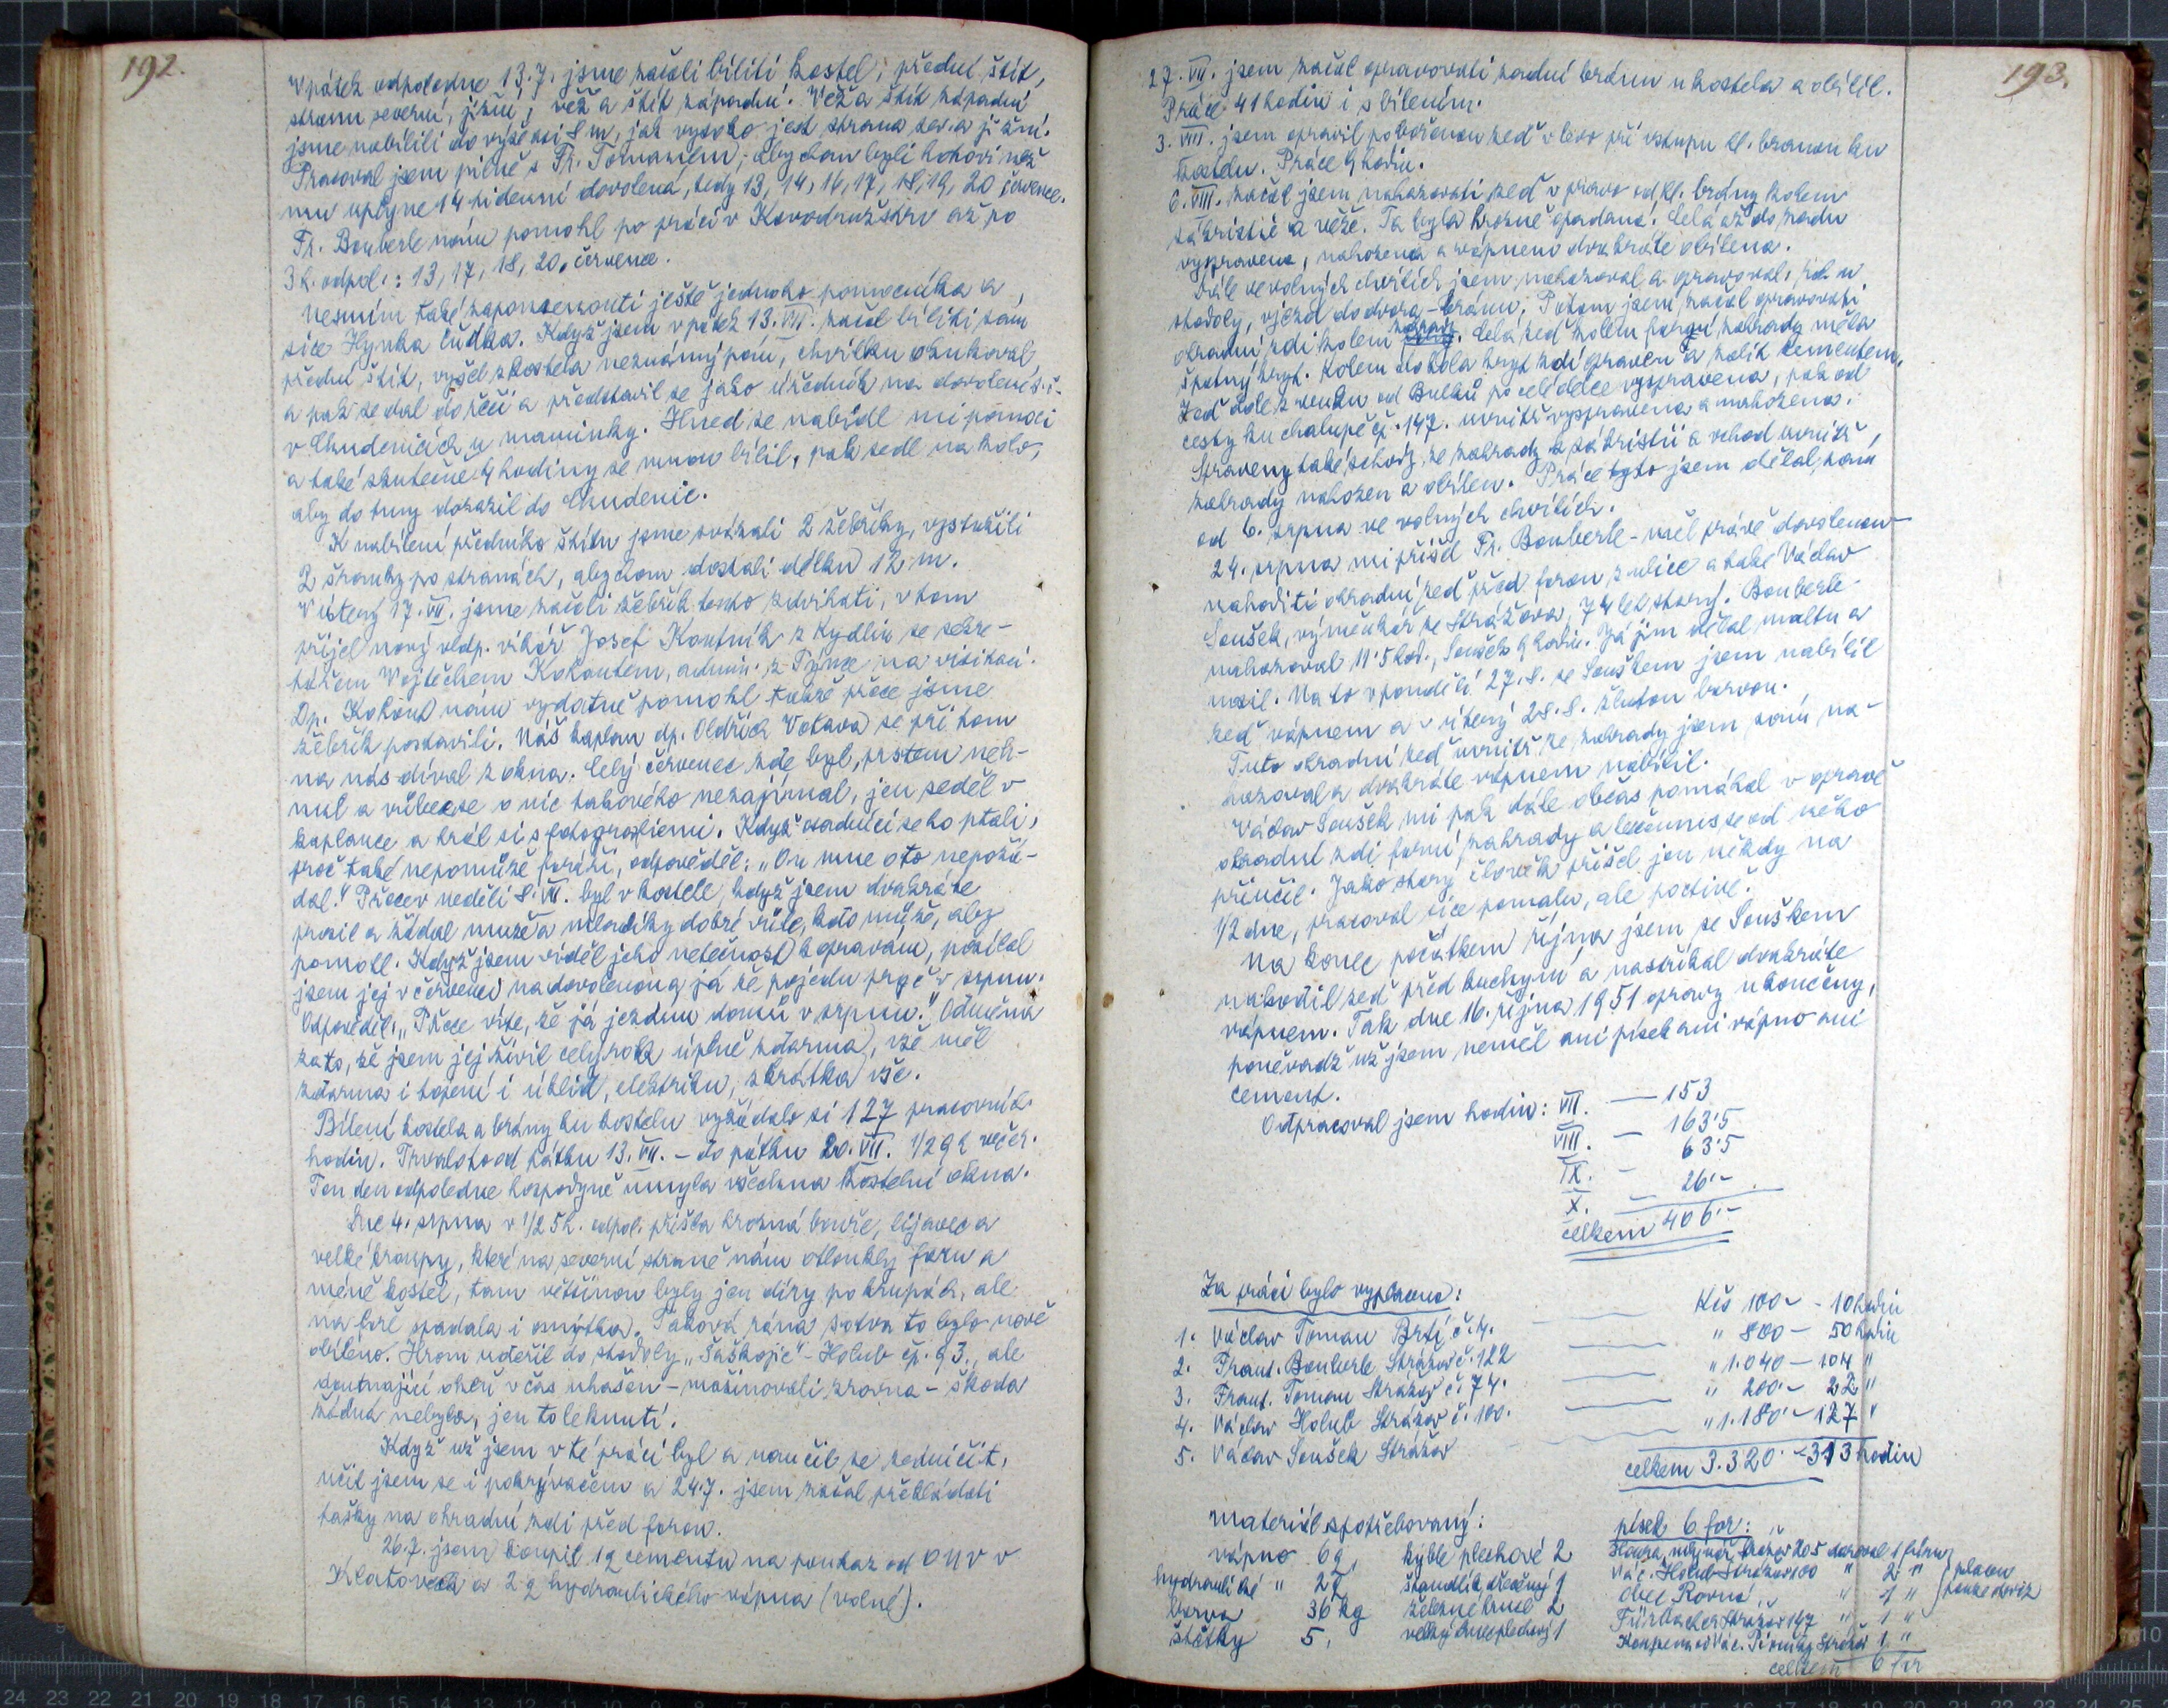 192.
V pátek odpoledne 13.7. jsme začali bíliti kostel; přední štít,
stranu severní, jižní, věž a štít západní. Věž a štít západní
jsme nabílili do výše asi 8 m, jak vysoko jest strana sev. a jižní.
Pracoval jsem pilně s Fr. Tomanem, abychom byli hotovi než
mu uplyne 14 tidenní dovolená, tedy 13, 14, 16, 17, 18, 19, 20 července.
Fr. Bouberle nám pomohl po práci v Kovodružstvu až po
3 h. odpol.: 13, 17, 18, 20, července.
Nesmím také zapomenouti ještě jednoho pomocníka a,
sice Hynka Čudka. Když jsem v pátek 13. VII. začal bíliti sám
přední štít, vyšel z kostela neznámý pán, chvilku okukoval,
a pak se dal do řeči a představil se jako úředník na dovolené
v Chudenicích u maminky. Hned se nabídl mi pomoci
a také skutečně 4 hodiny se mnou bílil, pak sedl na kolo,
aby do tmy dorazil do Chudenic.
K nabílení předního štítu jsme svázali 2 žebříky, vyztužili
2 šrouby po stranách, abychom dostali délku 12 m.
V úterý 17. VII. jsme začali žebřík tento zdvihati, v tom
přijel nový vldp. vikář Josef Koutník z Kydlin se sekre-
tářem Vojtěchem Kohoutem, admin. z Týnce na visitaci.
Dp. Kohout nám vydatně pomohl takže přece jsme
žebřík postavili. Náš kaplan dp. Oldřich Votava se při tom
na nás díval z okna. Celý červenec zde byl, prstem neh-
nul a vůbec se o nic takového nezajímal, jen seděl v
kaplance a hrál si s fotografiemi. Když osadníci se ho ptali,
proč také nepomůže faráři, odpověděl: „On mne o to nepožá-
dal." Přece v neděli 8. VII. byl v kostele, když jsem dvakráte
prosil a žádal muže a mladíky dobré vůle, kdo může, aby
pomohl. Když jsem viděl jeho netečnost k opravám, posílal
jsem jej v červenci na dovolenou, já že pojedu pryč v srpnu.
Odpověděl: „Přece víte, že já jezdím domů v srpnu." Odměna
za to, že jsem jej živil celý rok úplně zdarma, vše měl
zdarma i topení i úklid, elektriku, zkrátka vše.
Bílení kostela a brány ku kostelu vyžádalo si 127 pracovních
hodin. Trvalo to od pátku 13. VII. – do pátku 20. VII. 1/2 9 h večer.
Ten den odpoledne hospodyně umyla všechna kostelní okna.
Dne 4. srpna v 1/2 5 h. odpol. přišla hrozná bouře, lijavec a
velké kroupy, které na severní straně nám otloukly faru a
méně kostel, tam většinou byly jen díry po krupách, ale
na faře spadala i omítka. Taková rána, sotva to bylo nově
obíleno. Hrom udeřil do stodoly „Šaškojic" – Holub čp. 93., ale
doutnající oheň v čas uhašen – mašinovali zrovna – škoda
žádná nebyla, jen to leknutí.
Když už jsem v té práci byl a naučil se zedničit,
učil jsem se i pokrývačem a 24.7. jsem začal překládati
tašky na ohradní zdi před farou.
26.7. jsem koupil 1 q cementu na poukaz od ONV v
Klatovech a 2 q hydraulického vápna (volné).
193.
27. VII. jsem začal opravovati zadní bránu u kostela a obílil.
Práce 41 hodin i s bílením.
3. VIII. jsem opravil pobořenou zeď v levo při vstupu hl. branou ku
kostelu. Práce 9 hodin.
6. VIII. začal jsem nahazovati zeď v pravo od hl. brány kolem
sakristie a věže. Ta byla hrozně opadaná. Celá až do zadu
vypravena, nahozena a vápnem dvakráte obílena.
Dále ve volných chvílích jsem nahazoval a opravoval, jak u
stodoly, vjezd do dvora – bránu. Potom jsem začal opravovati
ohradní zdi kolem zahrady. Celá zeď kolem farní zahrady měla
špatný kryt. Kolem dokola kryt zdi opraven a zalit cementem.
Zeď dole z venku od Bulků po celé délce vyspravena, pak od
cesty ku chalupě čp. 147. uvnitř vyspravena a nahozena.
Spraveny také schody ze zahrady k sakristii a vchod uvnitř,
zahrady nahozen a obílen. Práce tyto jsem dělal, sám
od 6. srpna ve volných chvílích.
24. srpna mi přišel Fr. Bouberle – měl právě dovolenou
nahoditi ohradní zeď před farou z ulice a také Václav
Soušek, výměnkář ze Strážova, 74 let starý. Bouberle
nahazoval 11.5 hod., Soušek 9 hodin. Já jim dělal maltu a
nosil. Na to v pondělí 27.8. se Souškem jsem nabílil
zeď vápnem a v úterý 28.8. žlutou barvou.
Tuto ohradní zeď uvnitř ze zahrady jsem sám na-
hazoval a dvakráte vápnem nabílil.
Václav Soušek mi pak dále občas pomáhal v opravě
ohradní zdi farní zahrady a lecčemus se od něho
přiučil. Jako starý člověk přišel jen někdy na
1/2 dne, pracoval sice pomalu, ale poctivě.
Na konec počátkem října jsem se Souškem
nahodil zeď před kuchyní a nastříkal dvakráte
vápnem. Tak dne 16. října 1951 opravy ukončeny,
poněvadž už jsem neměl ani písek ani vápno ani
cement.
Odpracoval jsem hodin: VII. — 153
VIII. — 163.5
IX. – 63.5
X. – 26.–
celkem 406.–
Za práci bylo vyplaceno:
1. Václav Toman Brtí č. 4. — Kčs 100 – 10 hodin
2. Frant. Bouberle Strážov č. 122 — " 800 – 50 hodin
3. Frant. Toman Strážov č. 74. — " 1.040 – 104 "
4. Václav Holub Strážov č. 100. — " 200 – 22 "
5. Václav Soušek Strážov — " 1.180 – 127 "
celkem 3.320 – 313 hodin
materiál spotřebovaný:
vápno 6 q, kýble plechové 2
hydraulické " 2 q 1
barva 36 kg 2
štětky 5, 1
písek 6 for:
Strážov 205 daroval 1 fůru
Vác. Holub Strážov 100 " 2 "
obec Rovná, " 1 "
Strážov 147 " 1 "
Strážov 1 "
celkem 6 for